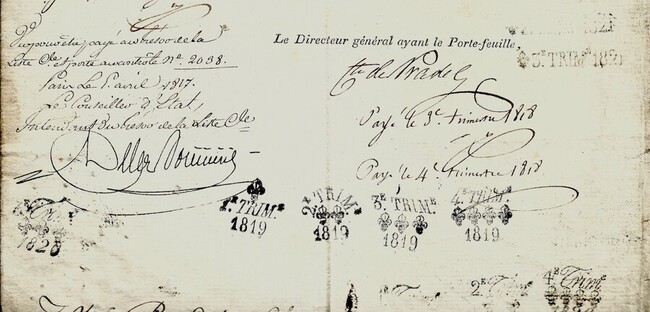 Vu pour être payé au tresor de la
Liste C.le et porté au contrôle N.o 2038.
Paris Le 1.er avril 1817.
Le Conseiller d'État,
Intendant du tresor de la Liste C.le
Le Directeur général ayant le Porte-feuille,
C.te de Pradel
3.E TRIM.E 1821
Payé le 3.e trimestre 1818
Payé le 4.e trimestre 1818
1.R TRIM.E
1819
2.E TRIM.E
1819
3.E TRIM.E
1819
4.E TRIM.E
1819
2.E Trim
4.E Trim.